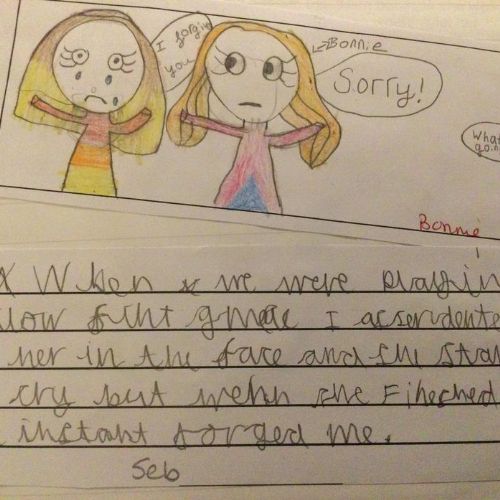 I forgive
you
Bonnie
Sorry!
What
goin
Bonnie
When we were playin
low fiht gmae I acserdente
her in the face and she star
cry but wehn she Fiheshed
instant forged me.
Seb